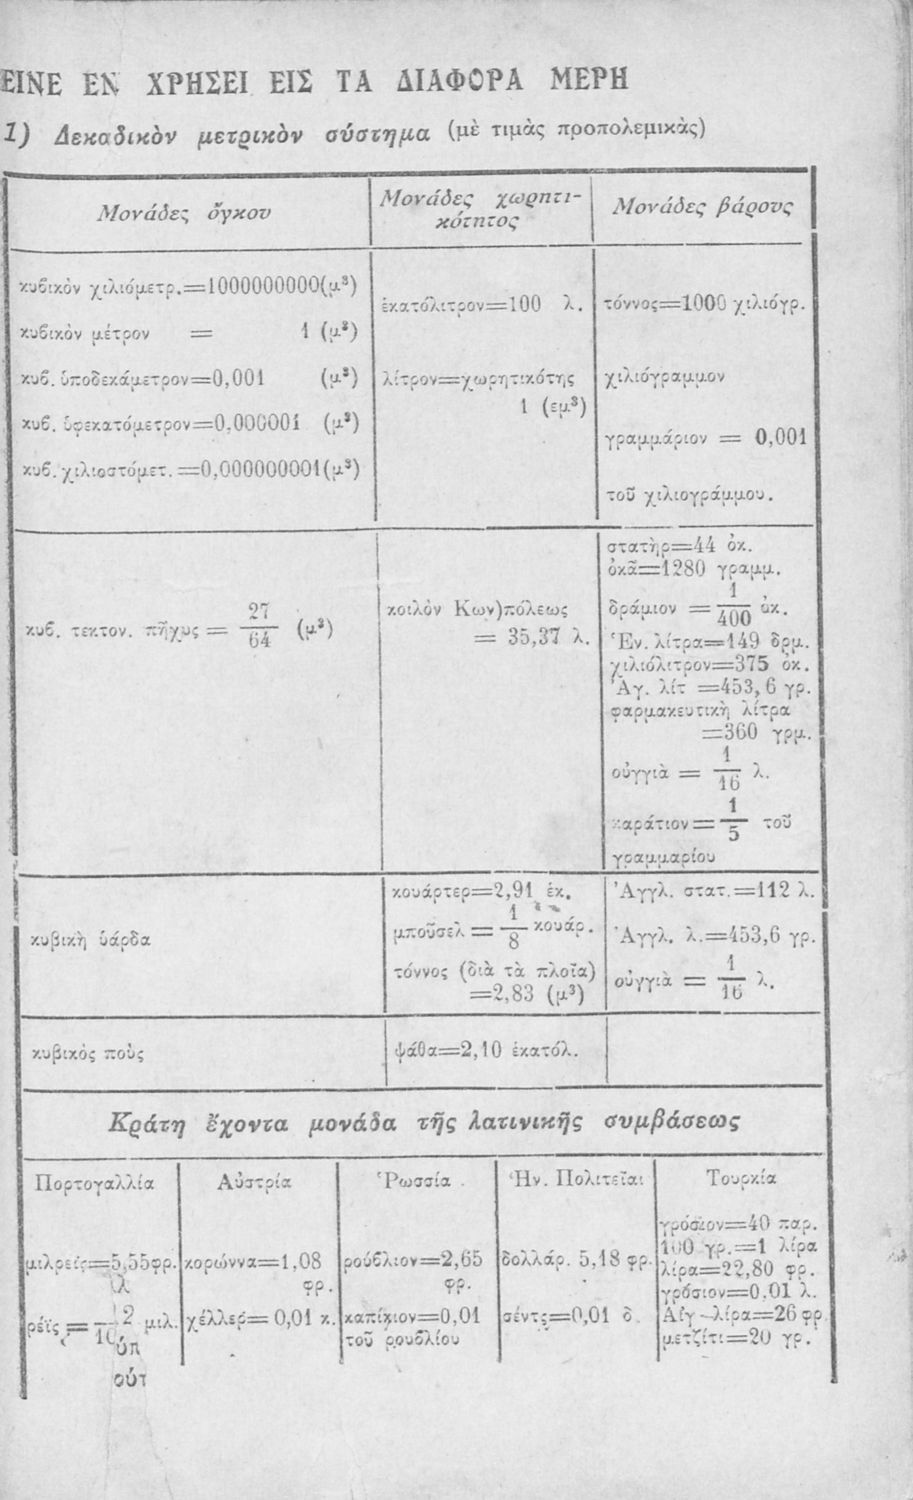 ΕΙΝΕ ΕΝ ΧΡΗΣΕΙ ΕΙΣ ΤΑ ΔΙΑΦΟΡΑ ΜΕΡΗ
1) Δεκαδικὸν μετρικὸν σύστημα (μὲ τιμὰς προπολεμικὰς)
Μονάδες ὄγκου
κυβικὸν χιλιόμετρ.=1000000000(μ³)
κυβικὸν μέτρον = 1 (μ³)
κυβ. ὑποδεκάμετρον=0,001 (μ³)
κυβ. ὑφεκατόμετρον=0,000001 (μ³)
κυβ. χιλιοστόμετ. =0,000000001(μ³)
Μονάδες χωρητι-
κότητος
ἑκατόλιτρον=100 λ.
λίτρον=χωρητικότης
1 (εμ³)
Μονάδες βάρους
τόννος=1000 χιλιόγρ.
χιλιόγραμμον
γραμμάριον = 0,001
τοῦ χιλιογράμμου.
κυβ. τεκτον. πῆχυς = 27/64 (μ³)
κοιλὸν Κων)πόλεως
= 35,37 λ.
στατὴρ=44 ὀκ.
ὀκᾶ=1280 γραμμ.
δράμιον = 1/400 ὀκ.
Ἑν. λίτρα=149 δρμ.
χιλιόλιτρον=375 ὀκ.
Ἀγ. λίτ =453,6 γρ.
φαρμακευτικὴ λίτρα
=360 γρμ.
οὐγγιὰ = 1/16 λ.
καράτιον = 1/5 τοῦ
γραμμαρίου
κυβικὴ ὑάρδα
κουάρτερ=2,91 ἑκ.
μποῦσελ = 1/8 κουάρ.
τόννος (διὰ τὰ πλοῖα)
=2,83 (μ³)
Ἀγγλ. στατ.=112 λ.
Ἀγγλ. λ.=453,6 γρ.
οὐγγιὰ = 1/16 λ.
κυβικὸς ποὺς
ψάθα=2,10 ἑκατόλ.
Κράτη ἔχοντα μονάδα τῆς λατινικῆς συμβάσεως
Πορτογαλλία
μιλρεῖς=5,55φρ.
ρέϊς = μιλ.
Αὐστρία
κορώννα=1,08
φρ.
χέλλερ= 0,01 κ.
Ῥωσσία
ρούβλιον=2,65
φρ.
καπίκιον=0,01
τοῦ ρουβλίου
Ἡν. Πολιτεῖαι
δολλάρ. 5,18 φρ.
σέντς=0,01 δ.
Τουρκία
γρόσιον=40 παρ.
100 γρ.=1 λίρα
λίρα=22,80 φρ.
γρόσιον=0,01 λ.
Αἰγ -λίρα=26 φρ
μετζίτι=20 γρ.